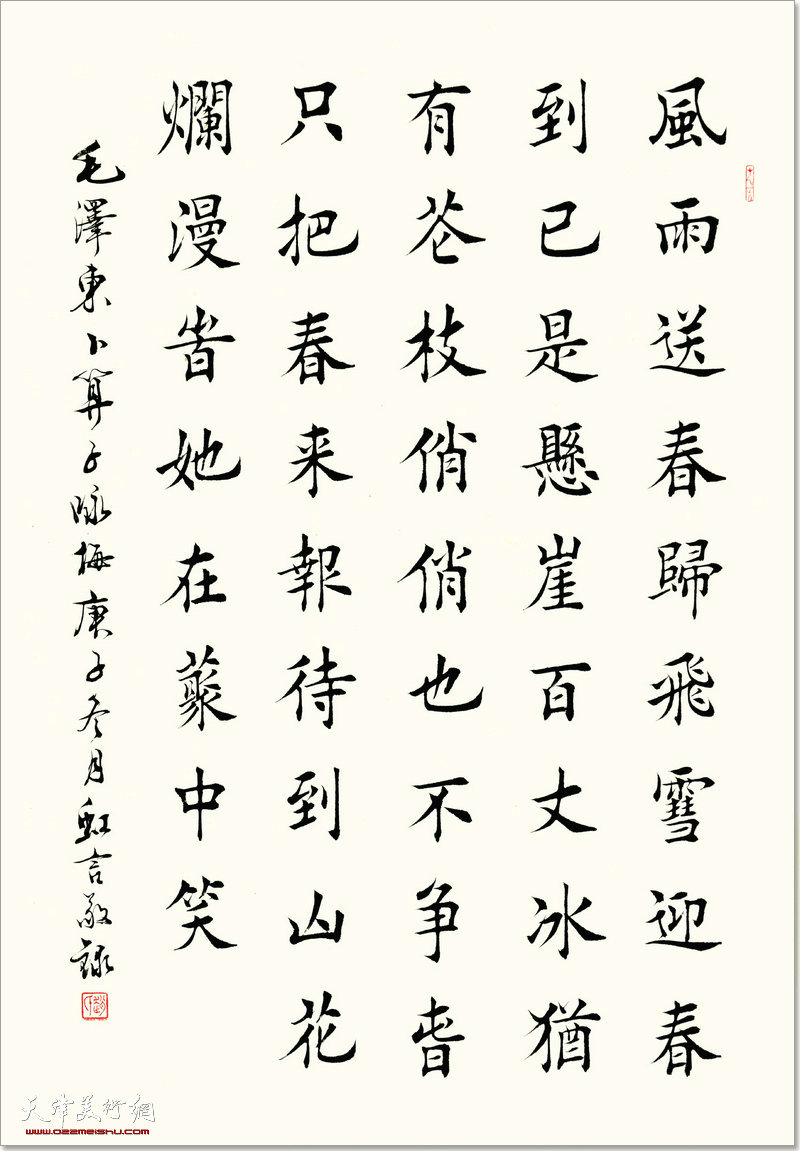 風雨送春歸飛雪迎春
到已是懸崖百丈冰猶
有芲枝俏俏也不争旾
只把春来報待到山花
爛漫旹她在藂中笑
毛澤東卜算子咏梅庚子冬月虹言敬録
天津美術網
www.022meishu.com